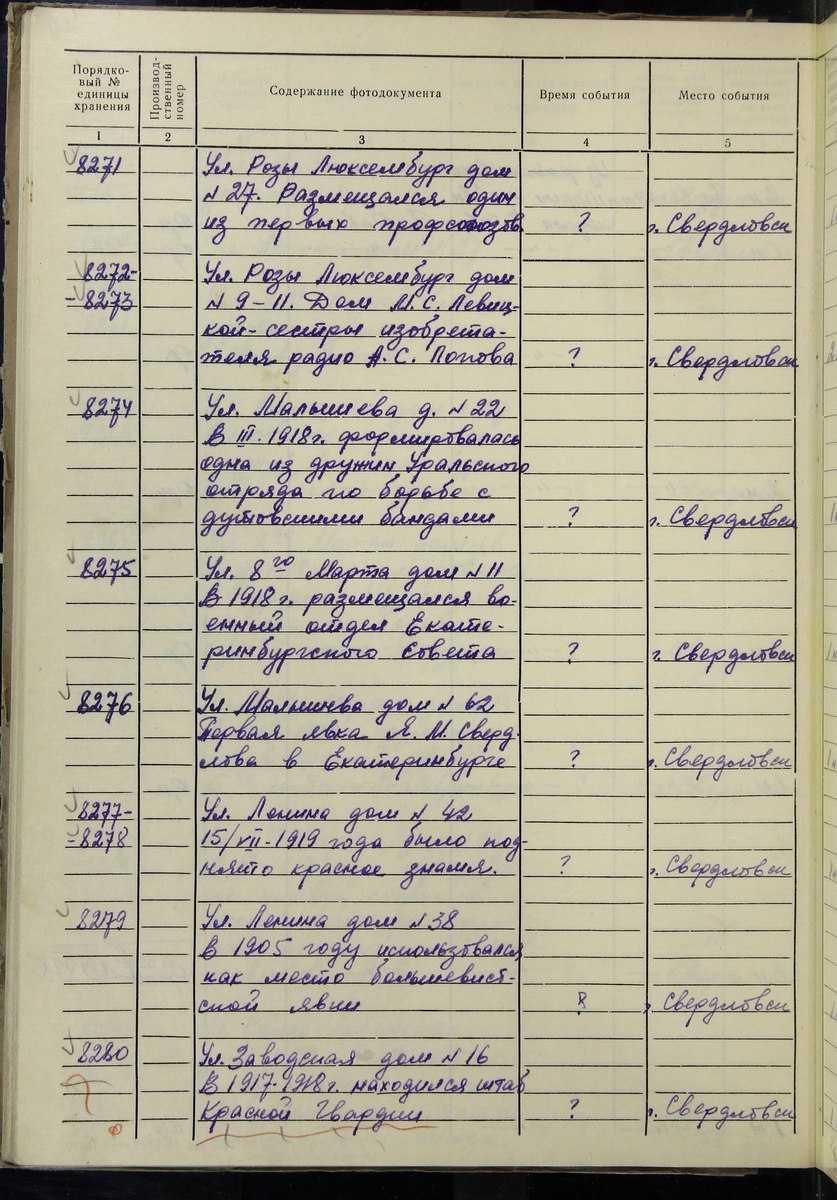 Порядко-
вый №
единицы
хранения
Производ-
ственный
номер
Содержание фотодокумента
Время события
Место события
1
2
3
4
5
8271
Ул. Розы Люксембург дом
№ 27. Размещался один
из первых профсоюзов ? г. Свердловск
8272- Ул. Розы Люксембург дом
-8273 № 9-11. Дом М.С. Левиц-
кой-сестры изобрета-
теля радио А.С. Попова ? г. Свердловск
8274 Ул. Малышева д. № 22
В III. 1918 г. формировалась
одна из дружин Уральского
отряда по борьбе с
дутовскими бандами ? г. Свердловск
8275 Ул. 8го Марта дом № 11
В 1918 г. размещался во-
енный отдел Екате-
ринбургского Совета ? г. Свердловск
8276 Ул. Малышева дом № 62
Первая явка Я. М. Сверд-
лова в Екатеринбурге ? г. Свердловск
8277- Ул. Ленина дом № 42
-8278 15/VII-1919 года было под-
нято красное знамя. ? г. Свердловск
8279 Ул. Ленина дом № 38
В 1905 году использовался
как место большевист-
ской явки ? г. Свердловск
8280 Ул. Заводская дом № 16
В 1917-1918 г. находился штаб
Красной Гвардии ? г. Свердловск